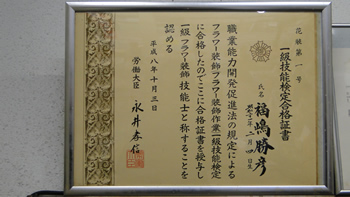 第一号
一級技能検定合格証書
氏名
福嶋勝彦
二月四日生
職業能力開発促進法の規定による
フラワー装飾フラワー装飾作業一級技能検定
に合格したのでここに合格証書を授与し
一級フラワー装飾技能士と称することを
認める
平成八年十月三日
労働大臣 永井孝信